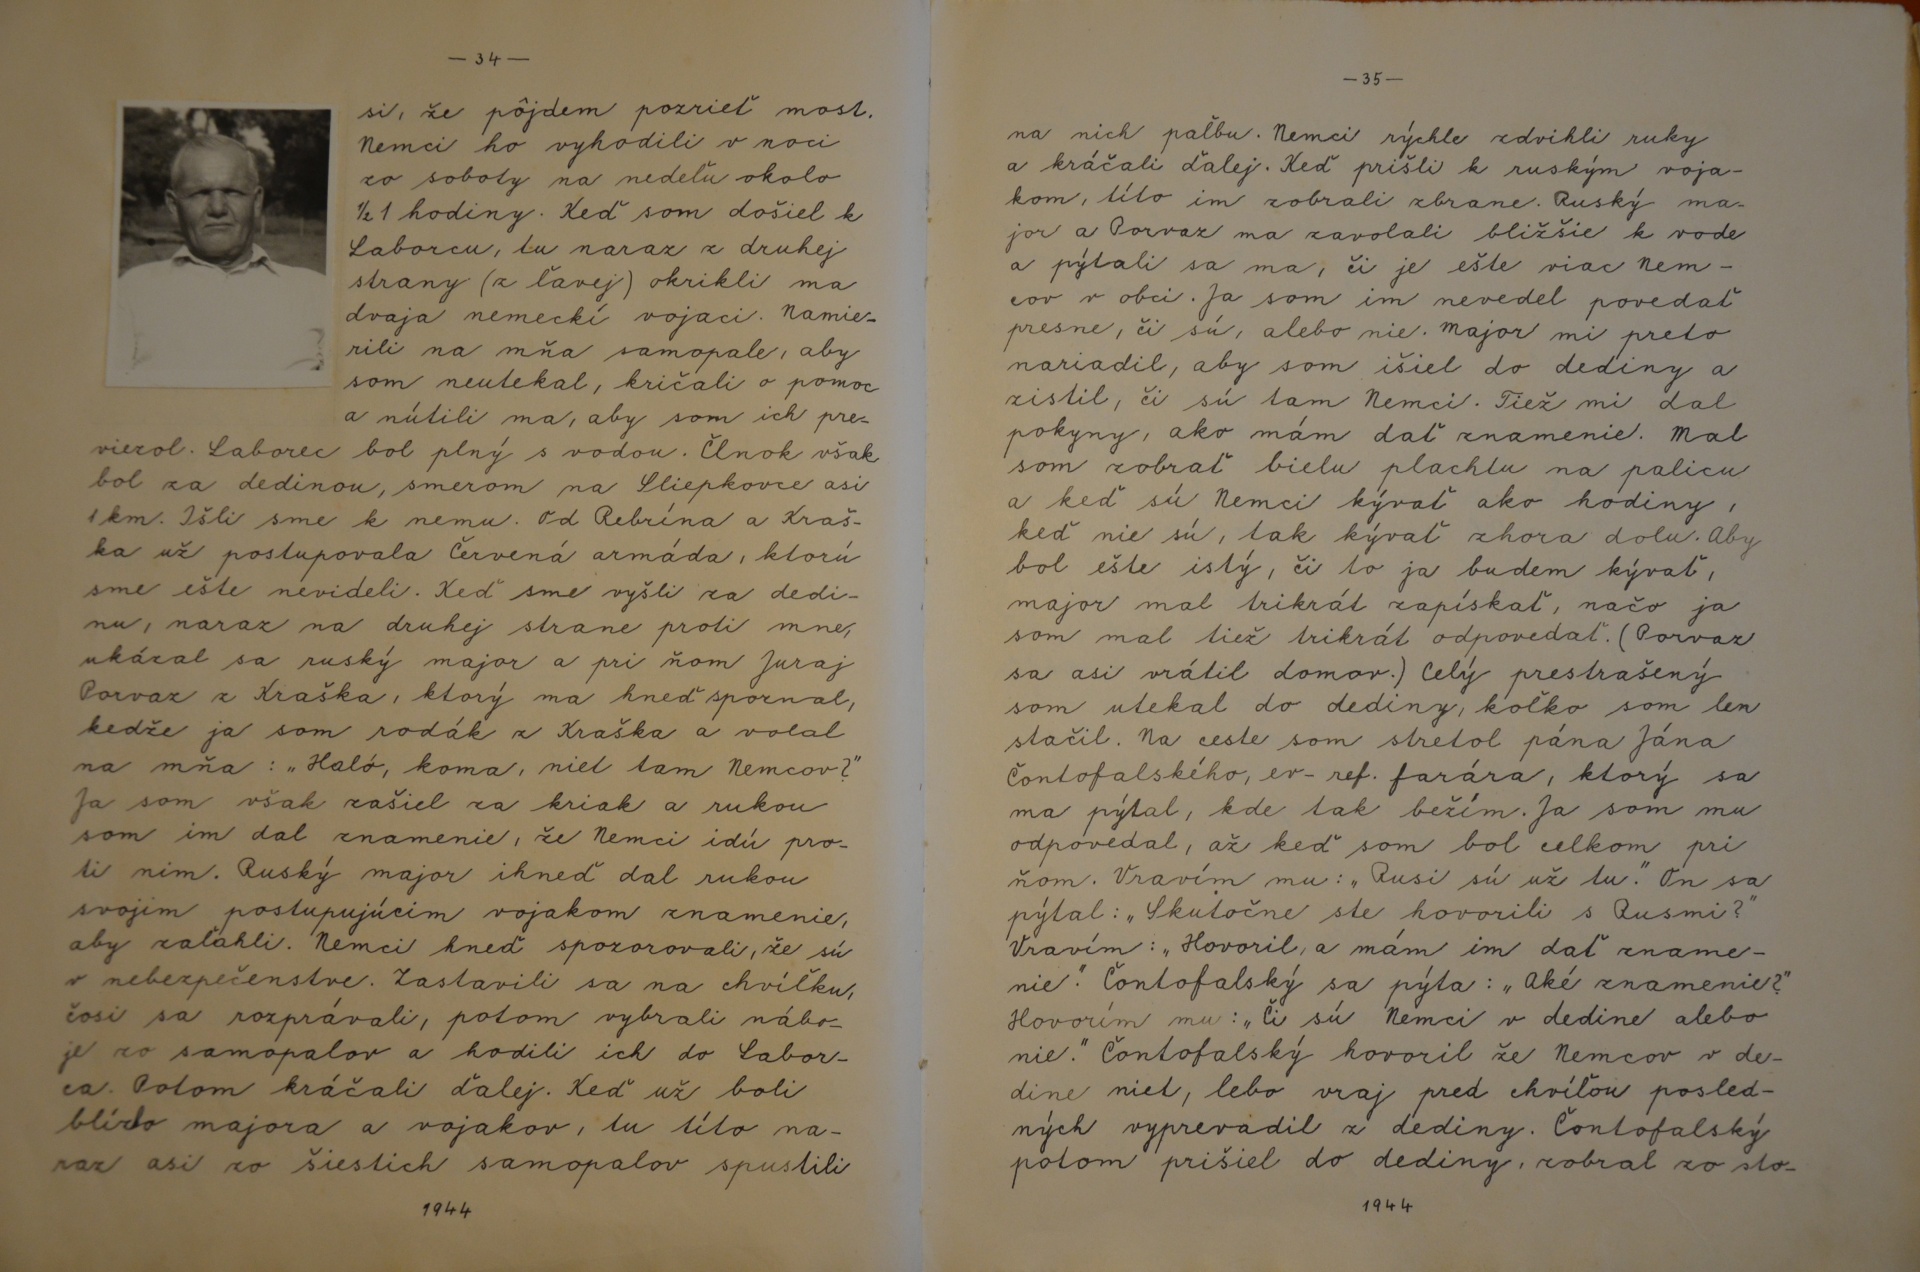 — 34 —
si, že pôjdem pozrieť most.
Nemci ho vyhodili v noci
zo soboty na nedeľu okolo
½ 1 hodiny. Keď som došiel k
Laborcu, tu naraz z druhej
strany (z ľavej) okrikli ma
dvaja nemeckí vojaci. Namie-
rili na mňa samopale, aby
som neutekal, kričali o pomoc
a nútili ma, aby som ich pre-
viezol. Laborec bol plný s vodou. Člnok však
bol za dedinou, smerom na Sliepkovce asi
1 km. Išli sme k nemu. Od Rebrína a Kraš-
ka už postupovala Červená armáda, ktorú
sme ešte nevideli. Keď sme vyšli za dedi-
nu, naraz na druhej strane proti mne,
ukázal sa ruský major a pri ňom Juraj
Porvaz z Kraška, ktorý ma hneď spoznal,
kedže ja som rodák z Kraška a volal
na mňa : „Haló, koma, niet tam Nemcov?"
Ja som však zašiel za kriak a rukou
som im dal znamenie, že Nemci idú pro-
ti nim. Ruský major ihneď dal rukou
svojim postupujúcim vojakom znamenie,
aby zaľahli. Nemci hneď spozorovali, že sú
v nebezpečenstve. Zastavili sa na chvíľku,
čosi sa rozprávali, potom vybrali nábo-
je zo samopalov a hodili ich do Labor-
ca. Potom kráčali ďalej. Keď už boli
blízo majora a vojakov, tu títo na-
raz asi zo šiestich samopalov spustili
1944
— 35 —
na nich paľbu. Nemci rýchle zdvihli ruky
a kráčali ďalej. Keď prišli k ruským voja-
kom, títo im zobrali zbrane. Ruský ma-
jor a Porvaz ma zavolali bližšie k vode
a pýtali sa ma, či je ešte viac Nem-
cov v obci. Ja som im nevedel povedať
presne, či sú, alebo nie. Major mi preto
nariadil, aby som išiel do dediny a
zistil, či sú tam Nemci. Tiež mi dal
pokyny, ako mám dať znamenie. Mal
som zobrať bielu plachtu na palicu
a keď sú Nemci kývať ako hodiny,
keď nie sú, tak kývať zhora dolu. Aby
bol ešte istý, či to ja budem kývať,
major mal trikrát zapískať, načo ja
som mal tiež trikrát odpovedať. (Porvaz
sa asi vrátil domov.) Celý prestrašený
som utekal do dediny, koľko som len
stačil. Na ceste som stretol pána Jána
Čontofalského, ev- ref. farára, ktorý sa
ma pýtal, kde tak bežím. Ja som mu
odpovedal, až keď som bol celkom pri
ňom. Vravím mu : „Rusi sú už tu." On sa
pýtal : „Skutočne ste hovorili s Rusmi?"
Vravím : „Hovoril, a mám im dať zname-
nie." Čontofalský sa pýta : „Aké znamenie?"
Hovorím mu : „Či sú Nemci v dedine alebo
nie." Čontofalský hovoril že Nemcov v de-
dine niet, lebo vraj pred chvíľou posled-
ných vyprevadil z dediny. Čontofalský
potom prišiel do dediny, zobral zo sto-
1944